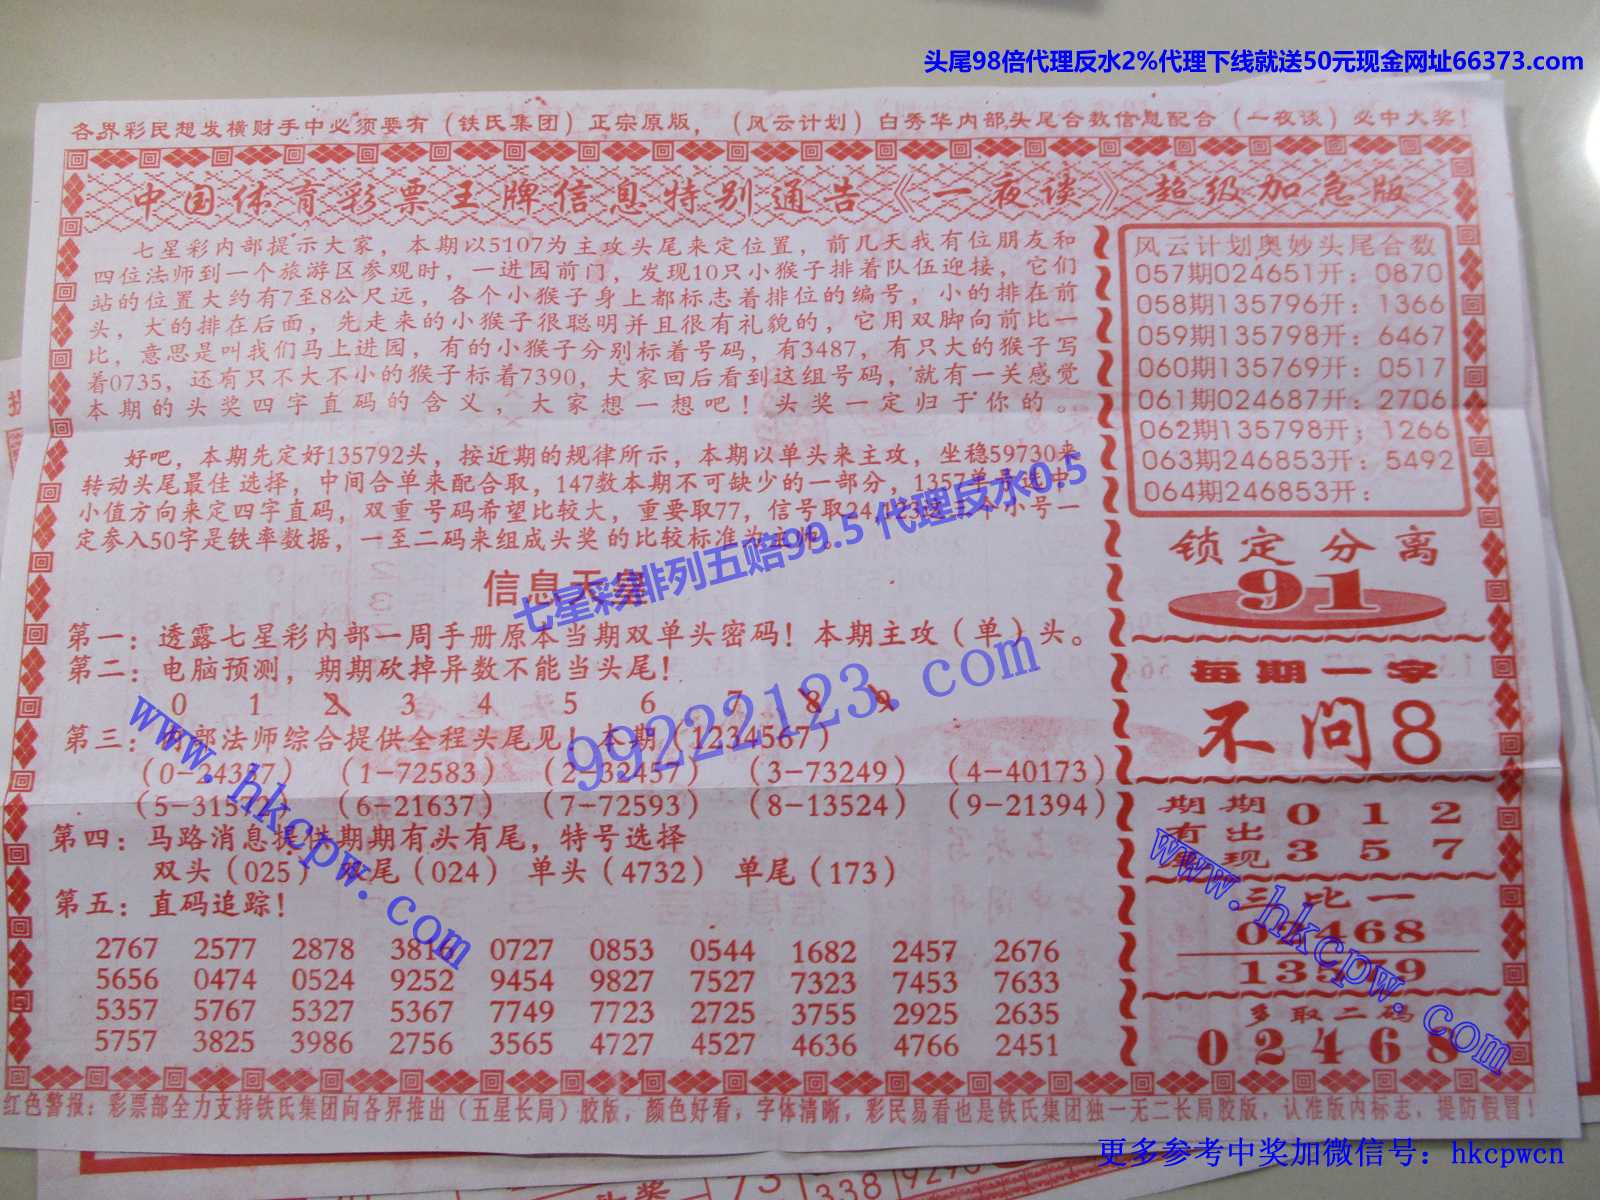 头尾98倍代理反水2%代理下线就送50元现金网址66373.com
各界彩民想发横财手中必须要有（铁氏集团）正宗原版，（风云计划）白秀华内部头尾合数信息配合（一夜谈）必中大奖！
中国体育彩票王牌信息特别通告《一夜谈》超级加急版
七星彩内部提示大家，本期以5107为主攻头尾来定位置，前几天我有位朋友和
四位法师到一个旅游区参观时，一进园前门，发现10只小猴子排着队伍迎接，它们
站的位置大约有7至8公尺远，各个小猴子身上都标志着排位的编号，小的排在前
头，大的排在后面，先走来的小猴子很聪明并且很有礼貌的，它用双脚向前比一
比，意思是叫我们马上进园，有的小猴子分别标着号码，有3487，有只大的猴子写
着0735，还有只不大不小的猴子标着7390，大家回后看到这组号码，就有一关感觉
本期的头奖四字直码的含义，大家想一想吧！头奖一定归于你的。
好吧，本期先定好135792头，按近期的规律所示，本期以单头来主攻，坐稳59730来
转动头尾最佳选择，中间合单来配合取，147数本期不可缺少的一部分，1357单号选中
小值方向来定四字直码，双重号码希望比较大，重要取77，信号取24,123这三个小号一
定参入50字是铁率数据，一至二码来组成头奖的比较标准为主帅。
七星彩排列五赔99.5 代理反水0.5
信息天
第一：透露七星彩内部一周手册原本当期双单头密码！本期主攻（单）头。
第二：电脑预测，期期砍掉异数不能当头尾！
0 1 2 3 4 5 6 7 8 9
99222123.com
www.hkcpw.com
第三：内部法师综合提供全程头尾见！本期（1234567）
（0-24387） （1-72583） （2-32457） （3-73249） （4-40173）
（5-315 ） （6-21637） （7-72593） （8-13524） （9-21394）
第四：马路消息提供期期有头有尾，特号选择
双头（025） 双尾（024） 单头（4732） 单尾（173）
第五：直码追踪！
2767 2577 2878 3816 0727 0853 0544 1682 2457 2676
5656 0474 0524 9252 9454 9827 7527 7323 7453 7633
5357 5767 5327 5367 7749 7723 2725 3755 2925 2635
5757 3825 3986 2756 3565 4727 4527 4636 4766 2451
风云计划奥妙头尾合数
057期024651开：0870
058期135796开：1366
059期135798开：6467
060期135769开：0517
061期024687开：2706
062期135798开：1266
063期246853开：5492
064期246853开：
锁定分离
91
每期一字
不问8
期期 0 1 2
有出
现 3 5 7
www.hkcpw.com
三比一
02468
13579
多取二码
02468
红色警报：彩票部全力支持铁氏集团向各界推出（五星长局）胶版，颜色好看，字体清晰，彩民易看也是铁氏集团独一无二长局胶版，认准版内标志，提防假冒！
更多参考中奖加微信号：hkcpwcn
73
338